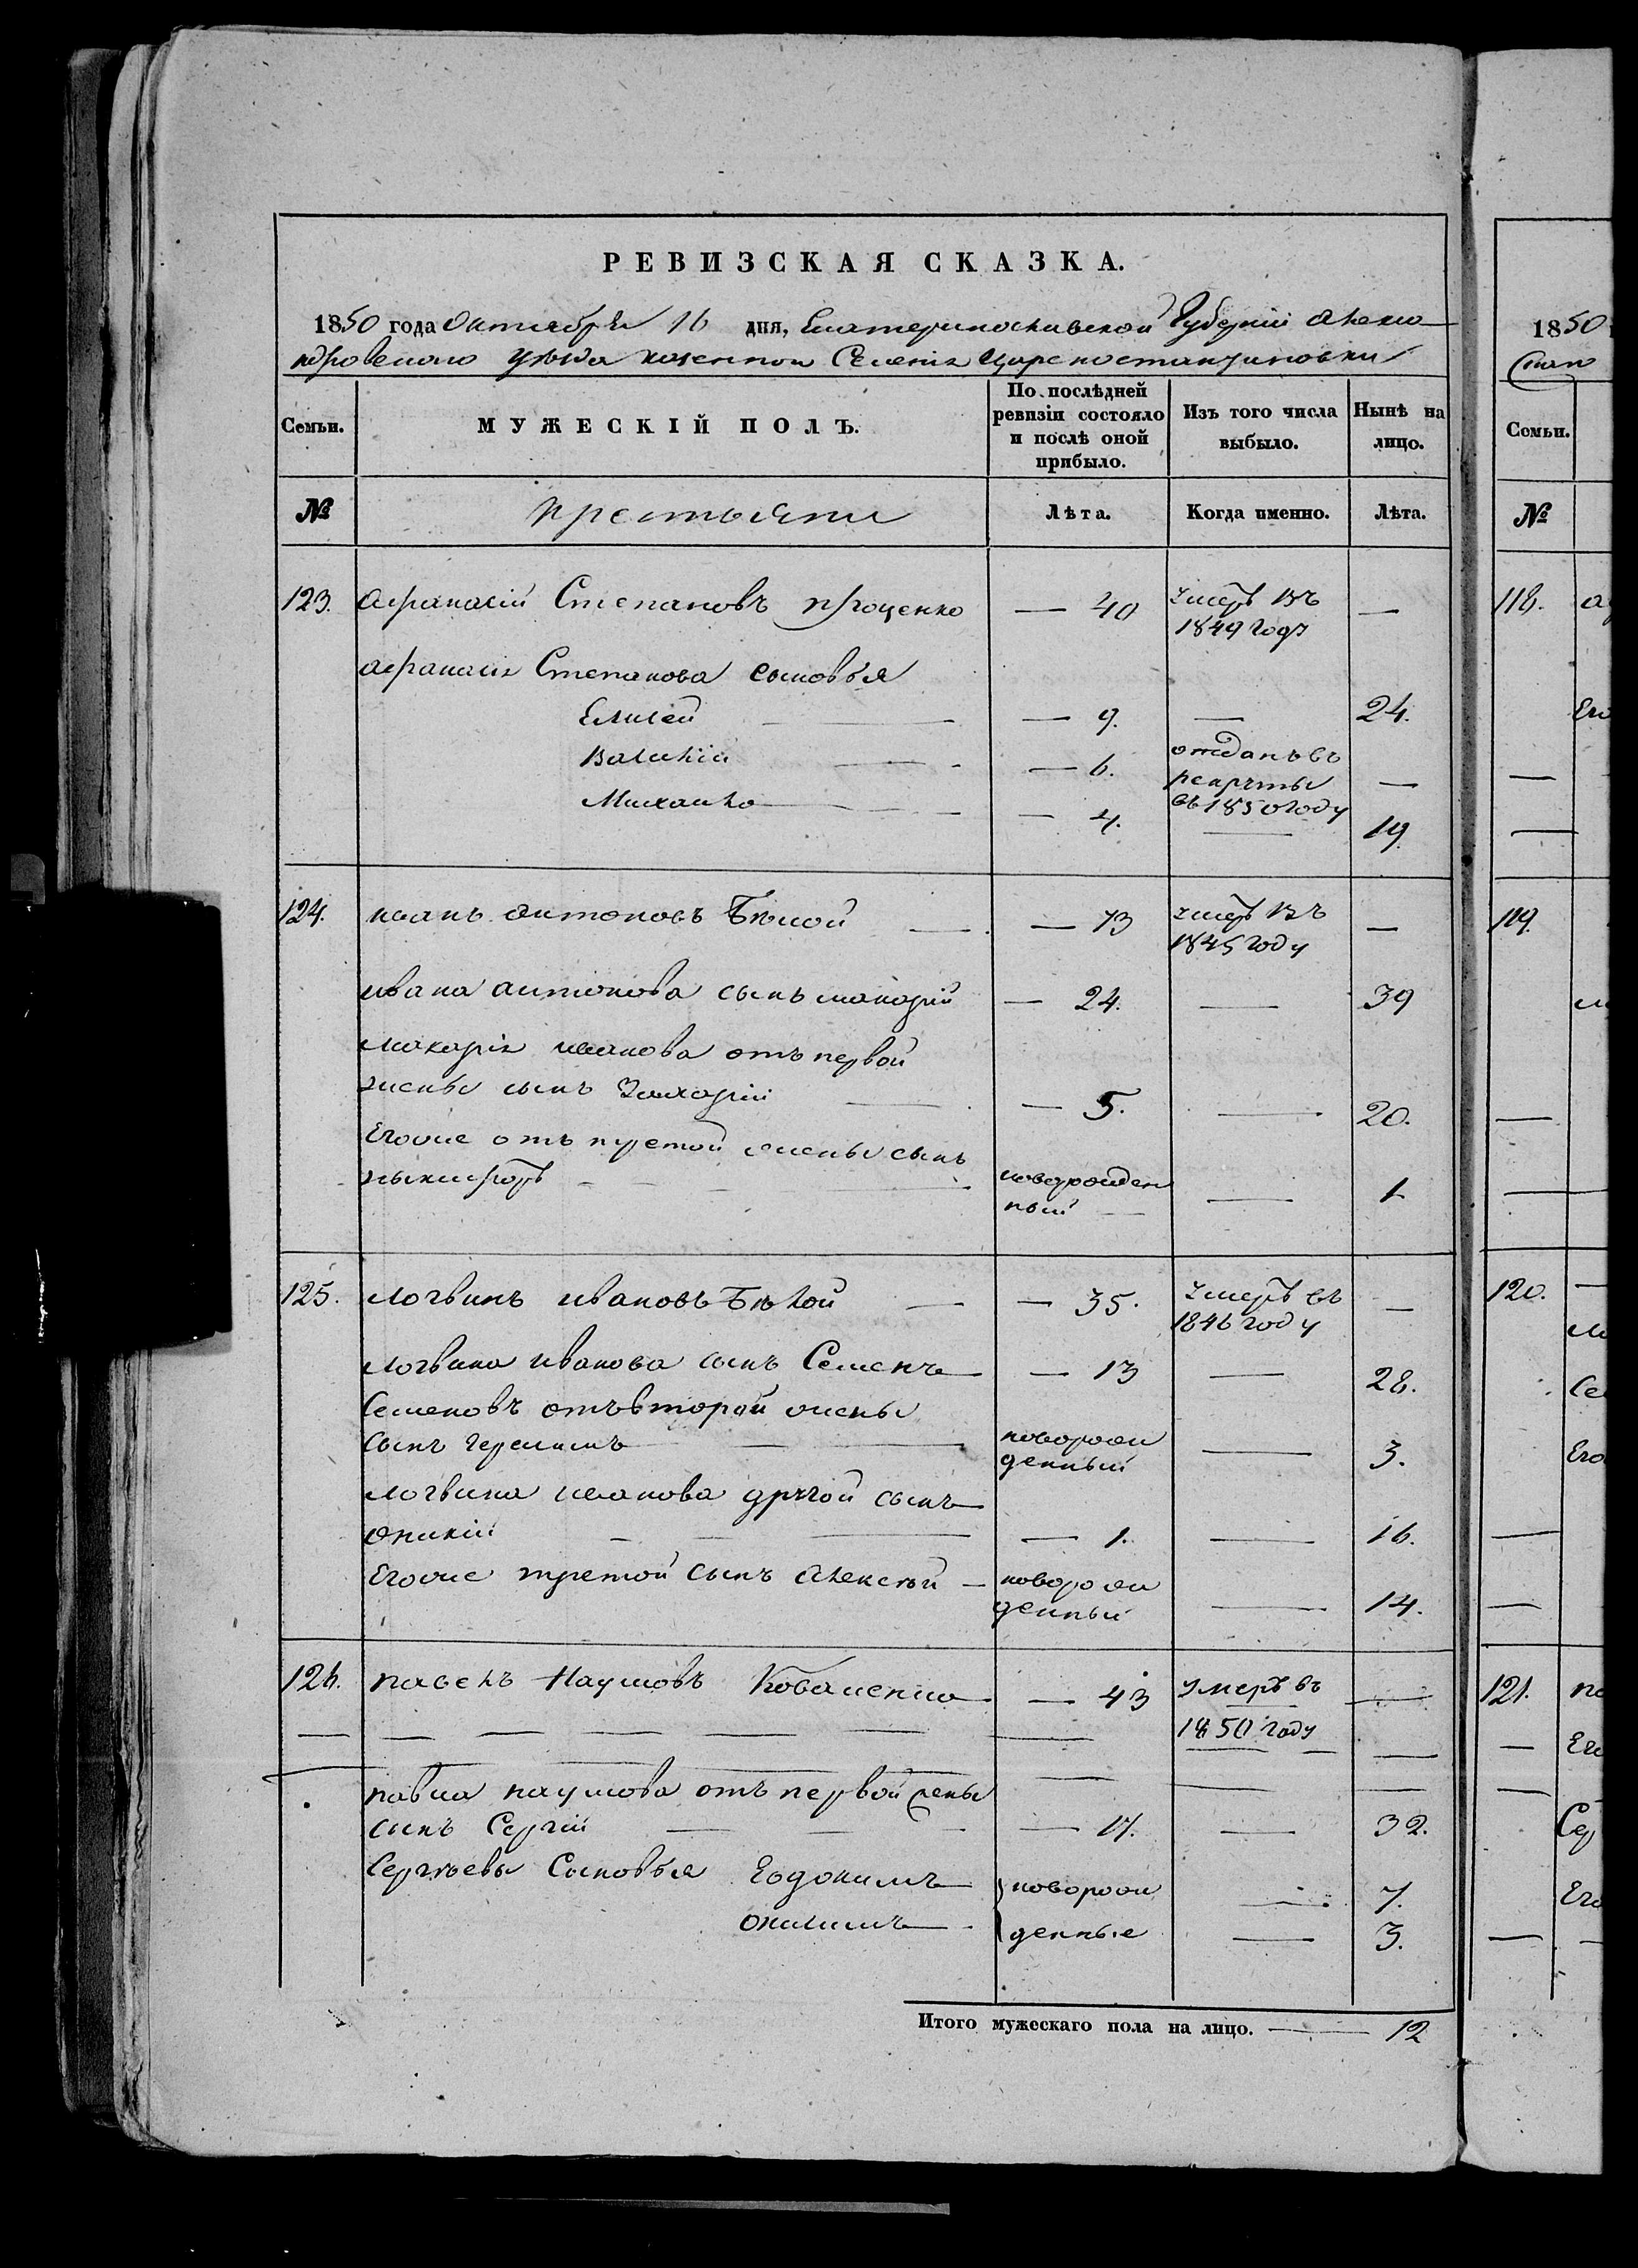 РЕВИЗСКАЯ СКАЗКА.
1850 года Октября 16 дня, Екатеринославской Губернии Алекса
ндровского уезда казенной Селения Цареконстантиновки
Семьи. МУЖЕСКІЙ ПОЛЪ. По послѣдней ревизіи состояло и послѣ оной прибыло. Изъ того числа выбыло. Нынѣ на лицо.
№ крестьяни Лѣта. Когда именно. Лѣта.
123. Афранасій Степановъ Проценко — 40 умеръ въ —
1849 году
Афранасія Степанова сыновья
Елисей — 9. — 24.
Василий — 6. отданъ въ
рекруты —
въ 1850 году
Михайло — 4. — 19
124. иванъ антоновъ Бѣлой — 73 умеръ въ —
1845 году
ивана антонова сынъ макарій — 24. — 39
макарія иванова отъ первой
жены сынъ Захарій — 5. — 20.
Егоже отъ третой жены сынъ
ныкифоръ новорожден
ный — 1
125. логвинъ ивановъ Бѣлой — 35. умеръ въ —
1846 году
логвина иванова сынъ Семенъ — 13 — 28.
Семеновъ отъ второй жены
сынъ герасимъ новорож
денный — 3.
логвина иванова другой сынъ
оникій — 1. — 16.
Егоже третой сынъ алексѣй — новорож
денный — 14.
126. павелъ Наумовъ Коваленко — 43 умеръ въ —
1850 году
павла наумова отъ первой жены
сынъ Сергій — 17. — 32.
Сергѣевы Сыновья Евдокимъ новорож — 7.
онисимъ денные — 3.
Итого мужескаго пола на лицо. — 12
1850
118.
Его
119.
120.
Се
Его
121. па
Его
Сер
Его
Семьи.
№